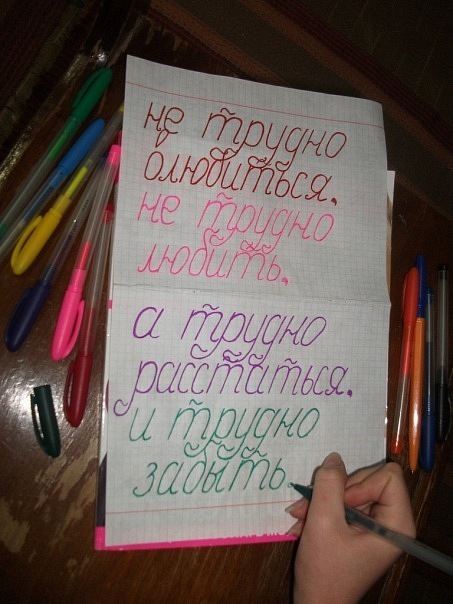 не трудно
влюбиться.
не трудно
любить,
а трудно
расстаться.
и трудно
забыть.